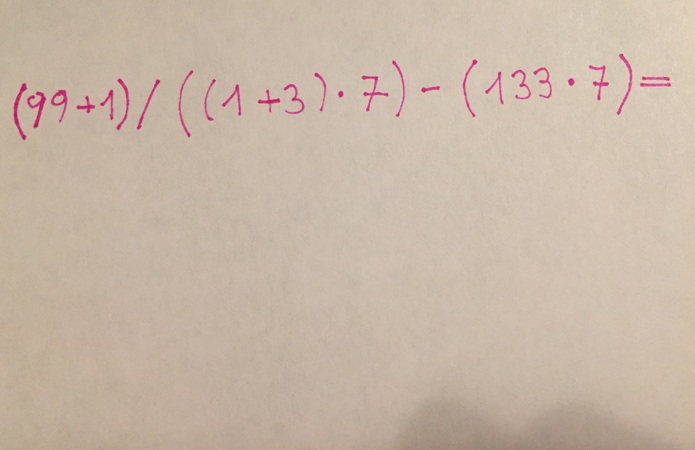 (99+1)/((1+3)·7)-(133·7)=